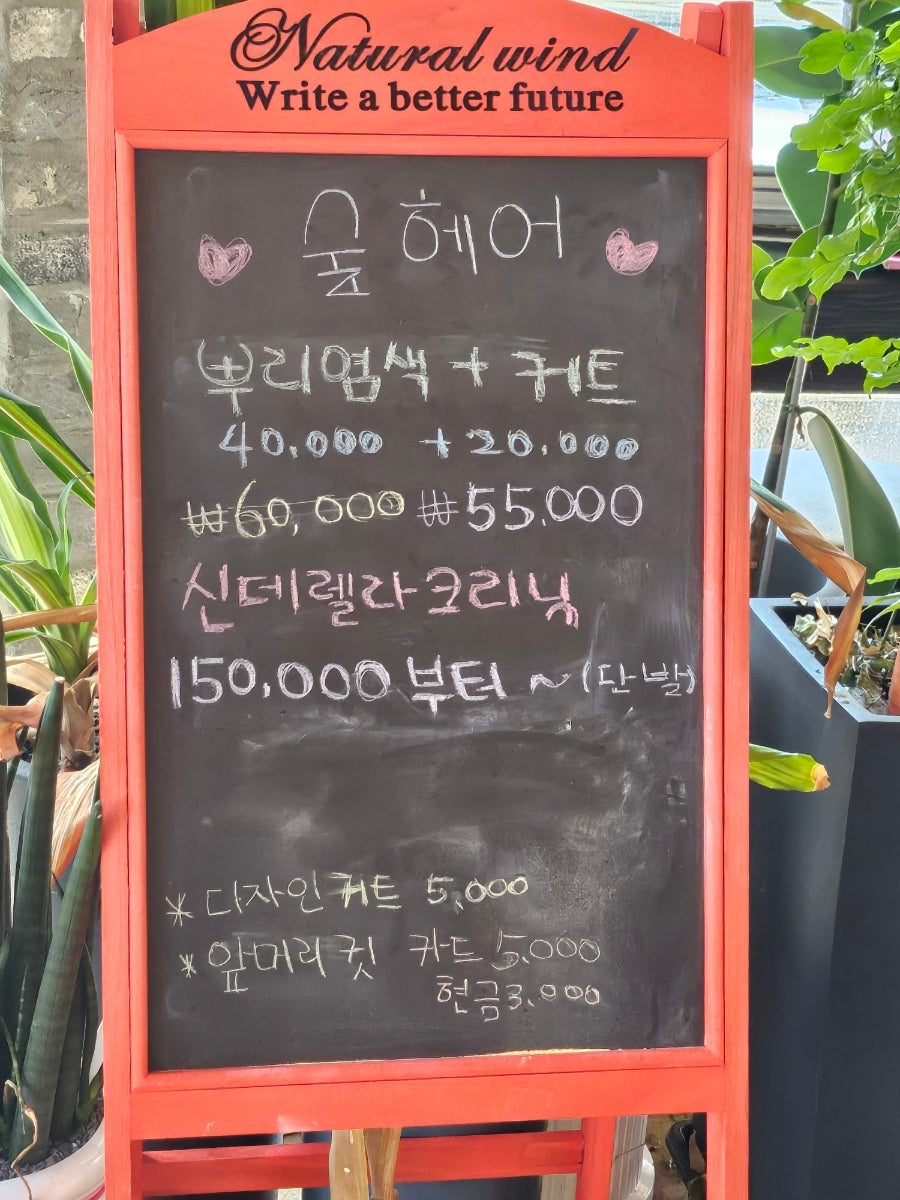 Natural wind
Write a better future
숲헤어
뿌리염색 + 커트
40.000 + 20.000
₩60,000 ₩55.000
신데렐라크리닉
150,000부터 ~ (단발)
* 디자인커트 5,000
* 앞머리컷 카드 5.000
현금3.000